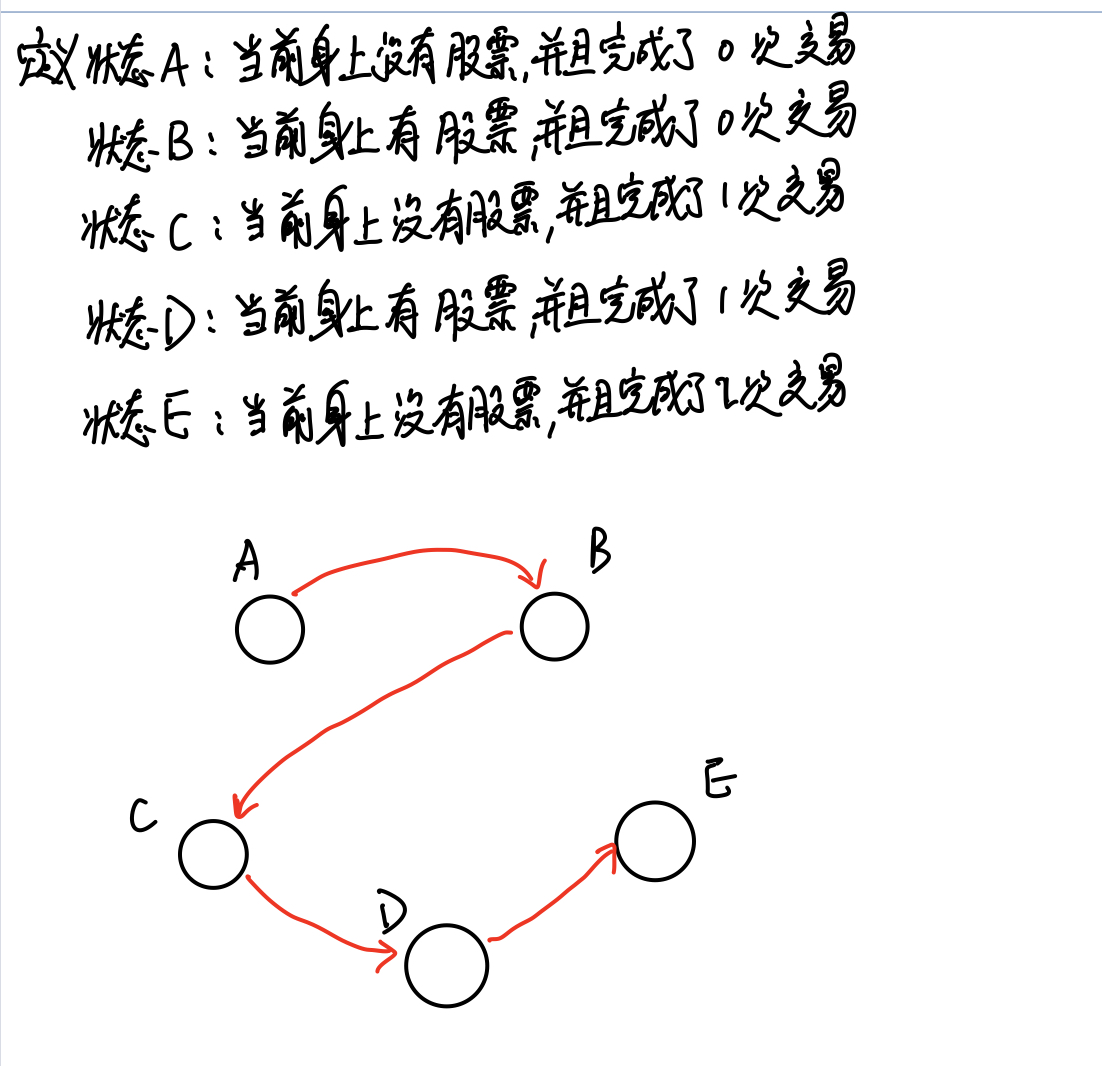 定义状态A：当前身上没有股票,并且完成了0次交易
状态B：当前身上有股票,并且完成了0次交易
状态C：当前身上没有股票,并且完成了1次交易
状态D：当前身上有股票,并且完成了1次交易
状态E：当前身上没有股票,并且完成了2次交易
A
B
C
D
E